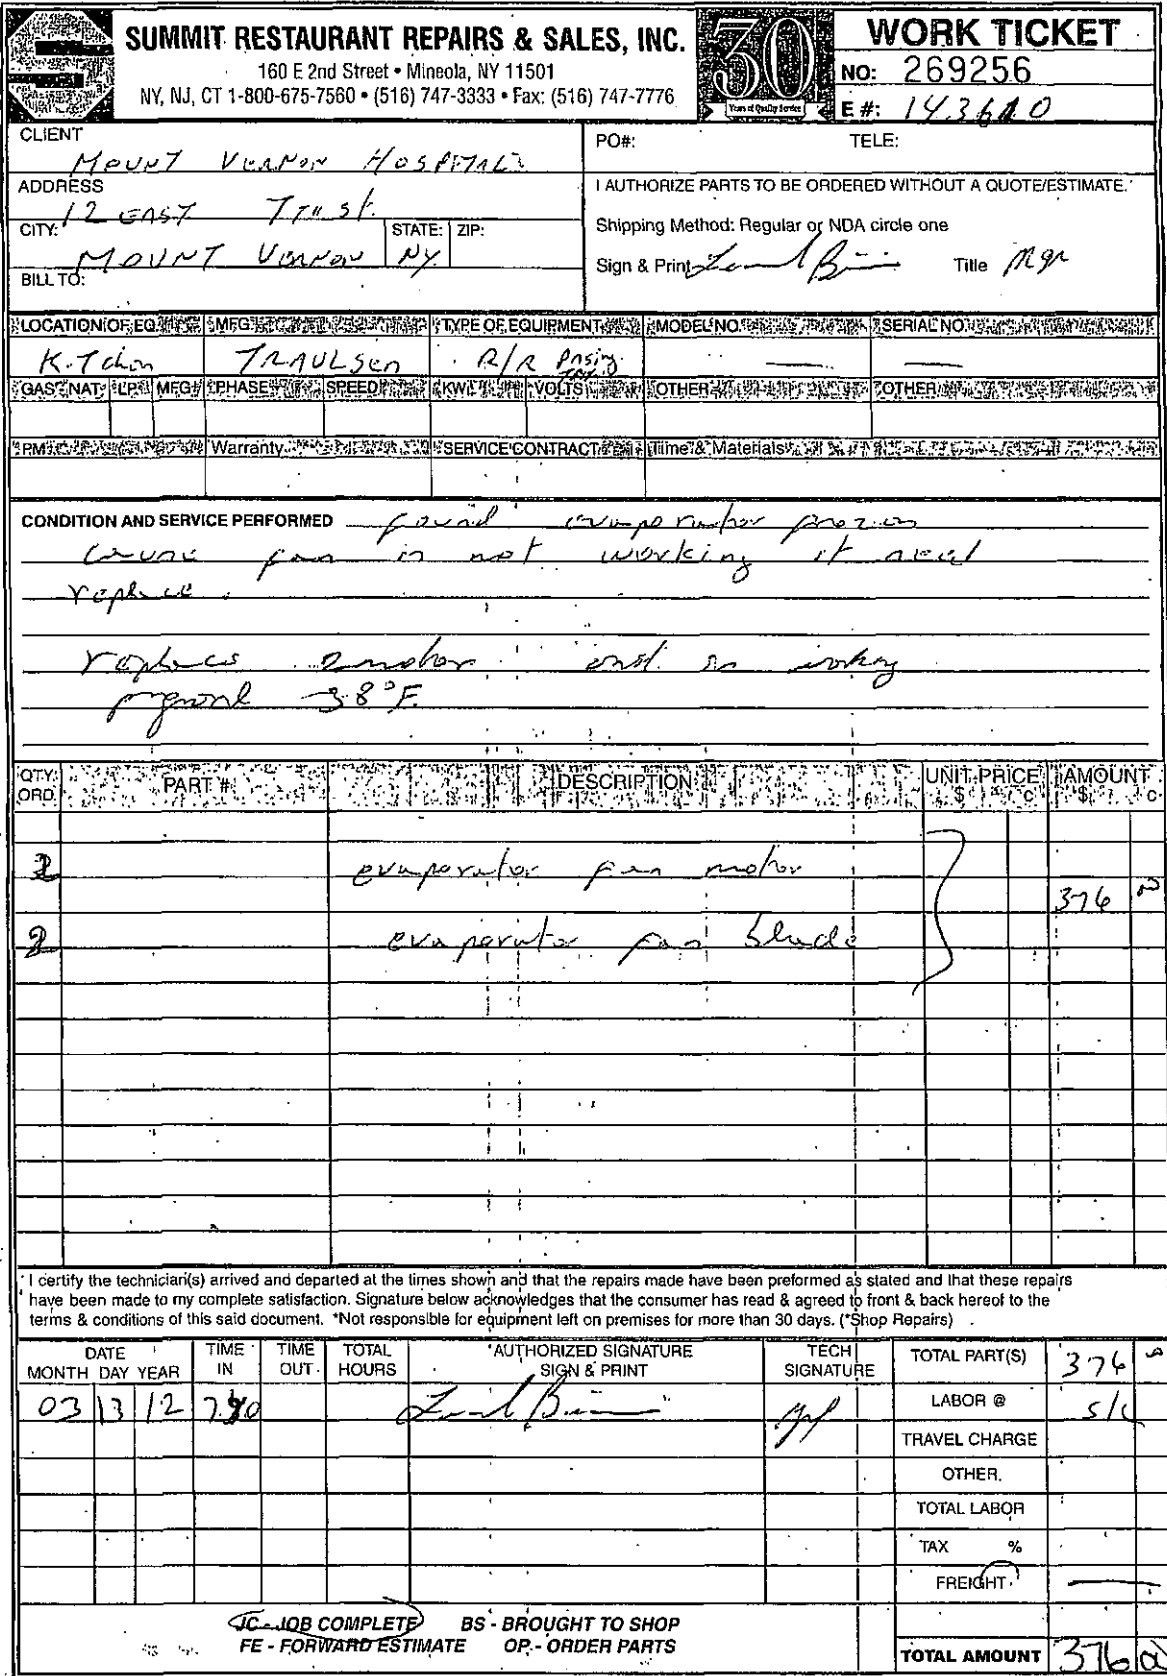 SUMMIT RESTAURANT REPAIRS & SALES, INC.
160 E 2nd Street • Mineola, NY 11501
NY, NJ, CT 1-800-675-7560 • (516) 747-3333 • Fax: (516) 747-7776
30
Years of Quality Service
WORK TICKET
NO: 269256
E #:
CLIENT
MOUNT VERNON HOSPITAL
ADDRESS
12 EAST 7TH St.
CITY: MOUNT VERNON STATE: NY ZIP:
BILL TO:
PO#: TELE:
I AUTHORIZE PARTS TO BE ORDERED WITHOUT A QUOTE/ESTIMATE.
Shipping Method: Regular or NDA circle one
Sign & Print Title Mgr
LOCATION OF EQ. MFG. TYPE OF EQUIPMENT MODEL NO. SERIAL NO.
KiTchen TRAULSEN R/R — —
GAS NAT LP MFG# PHASE SPEED KW VOLTS OTHER OTHER
PM Warranty SERVICE CONTRACT Time & Materials
CONDITION AND SERVICE PERFORMED found evaporator frozen
cause fan is not working it need
replace.
replaces motor and is working
38°F.
QTY. ORD. PART # DESCRIPTION UNIT PRICE $ c AMOUNT $ c
2 evaporator fan motor
376
2 evaporator fan blade
I certify the technician(s) arrived and departed at the times shown and that the repairs made have been preformed as stated and that these repairs
have been made to my complete satisfaction. Signature below acknowledges that the consumer has read & agreed to front & back hereof to the
terms & conditions of this said document. *Not responsible for equipment left on premises for more than 30 days. (*Shop Repairs)
DATE MONTH DAY YEAR TIME IN TIME OUT TOTAL HOURS *AUTHORIZED SIGNATURE SIGN & PRINT TECH SIGNATURE
03 13 12
TOTAL PART(S) 376
LABOR @ S/C
TRAVEL CHARGE
OTHER
TOTAL LABOR
TAX %
FREIGHT —
JC - JOB COMPLETE BS - BROUGHT TO SHOP
FE - FORWARD ESTIMATE OP - ORDER PARTS
TOTAL AMOUNT 376 00